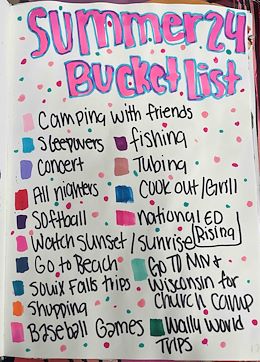 Summer24
Bucket List
Camping with friends
Sleepovers
fishing
Concert
Tubing
All nighters
Cook out/Grill
Softball
national ED
Rising
Watch sunset/sunrise
Go to Beach
Go TO MN+
Wisconsin for
Church Camp
Souix Falls trips
Shopping
Baseball Games
Wally World
Trips